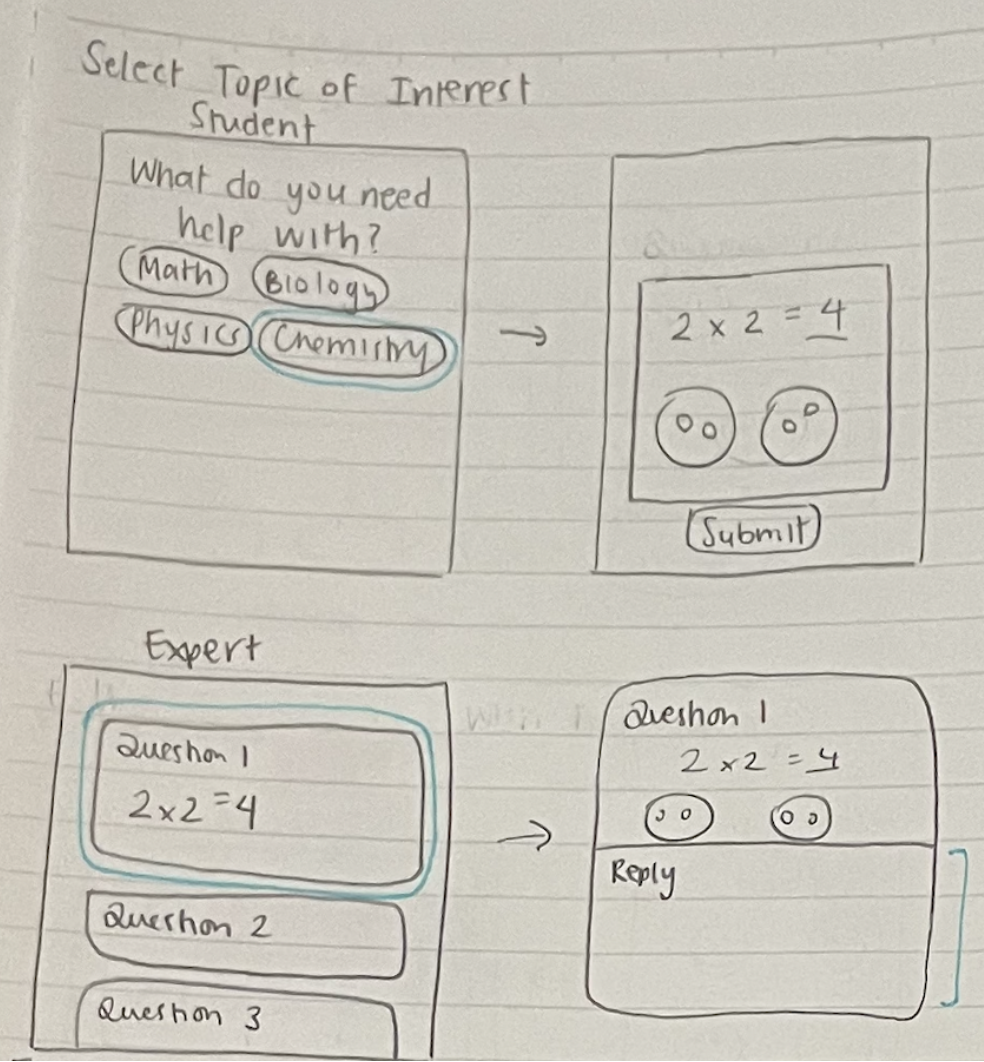 Select Topic of Interest
Student
What do you need
help with?
Math Biology
Physics Chemistry
→
2 × 2 = 4
Submit
Expert
Question 1
2 × 2 = 4
Question 2
Question 3
→
Question 1
2 × 2 = 4
Reply